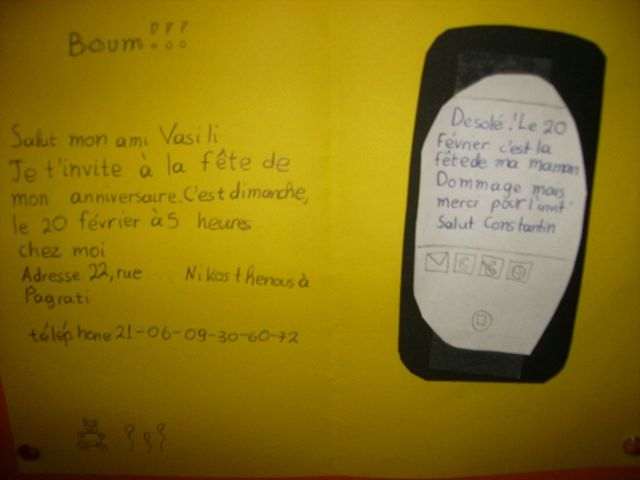 Boum!!!
Salut mon ami Vasili
Je t'invite à la fête de
mon anniversaire. C'est dimanche,
le 20 février à 5 heures
chez moi
Adresse 22, rue Nikosthenous à
Pagrati
téléphone 21-06-09-30-60-72
Desolé! Le 20
février c'est la
fête de ma maman
Dommage mais
merci pour l'invit'
Salut Constantin